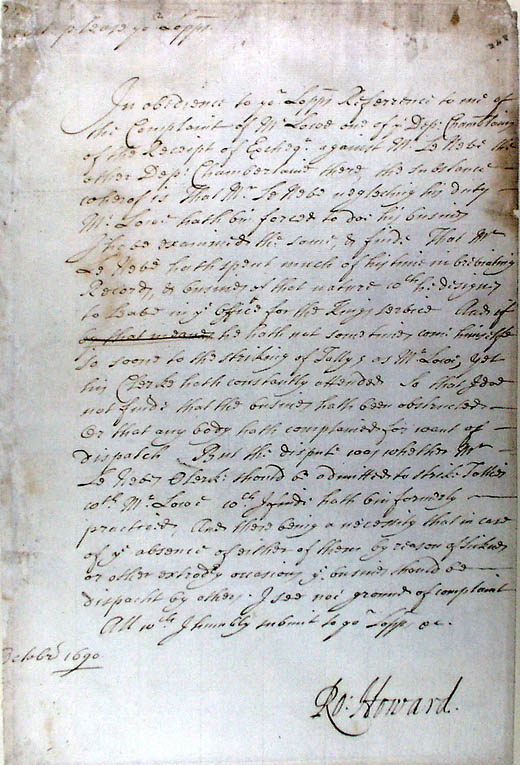 please yo:r Lopps.
In obedience to yo:r Lopps Referrence to me of
the Complaint of Mr Lowe one of ye Dep: Chamberlains
of the Receipt of Excheqr against Mr Le Nebe the
other Dep: Chamberlaine there, the substance
whereof is That Mr Le Nebe neglecting his duty
Mr Lowe hath bin forced to doe his busines
I have examined the same, & finde That Mr
Le Nebe hath spent much of his time in
Records, & busines of that nature wch he designes
to leave in ye office for the Kings service And if
he hath not sometimes come himselfe
so soone to the strikeing of Tallys as Mr Lowe, yet
his Clerke hath constantly attended So that I doe
not finde that the busines hath been obstructed
Or that any body hath complained for want of
dispatch But the dispute was whether Mr
Le Nebes Clerke should be admitted to strike Tallies
wth Mr Lowe wch I finde hath bin formerly
practiced, And there being a necessity that in case
of ye absence of either of them by reason of sicknes
or other extrodry occasions ye busines should be
dispacht by others I see noe ground of complaint
All wch I humbly submit to yor Lopps &c.
October 1690
Ro: Howard.